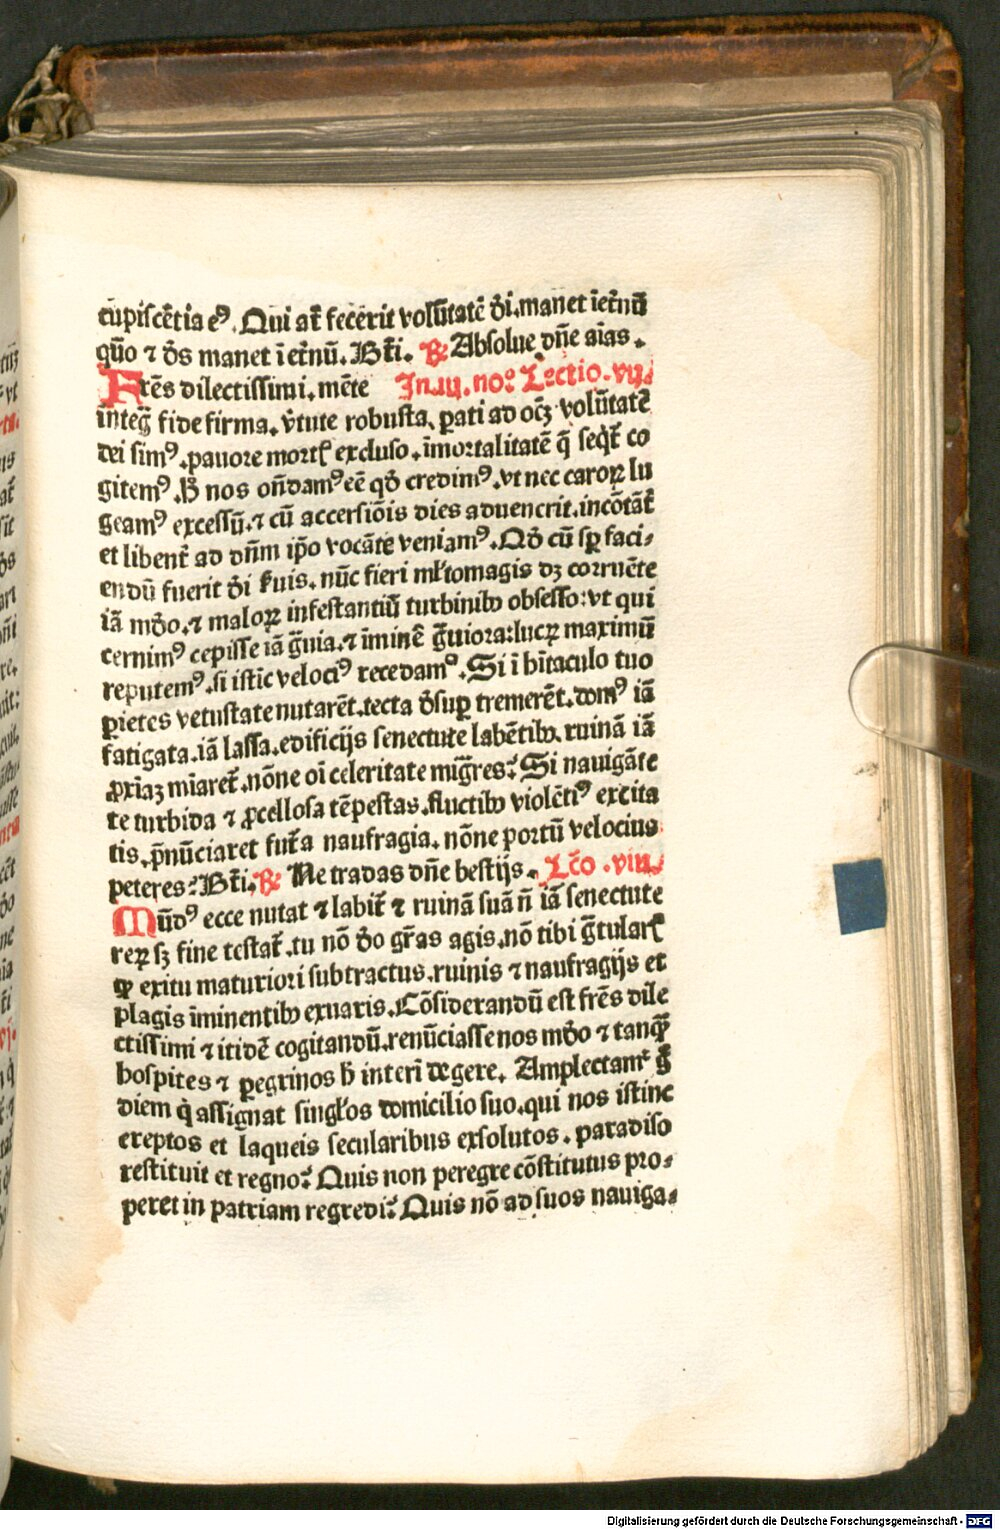 cūpiscētia eꝰ. Qui at̄ fecerit volūtatē d̄i. manet iet̄nū
quō ⁊ d̄s manet i et̄nū. Bt̄i. ℟ Absolue dn̄e aīas.
Frēs dilectissimi. mēte In .iij. no. Lectio. vij.
inteḡ fide firma. v̄tute robusta. ꝑati ad oēꝫ volūtatē
dei simꝰ. pauore mortꝭ excluso. īmortalitatē q̄ seqt̄ co
gitemꝰ. B̄ nos on̄damꝰ eē qd̄ credimꝰ. vt nec caroꝝ lu
geamꝰ excessū. ⁊ cū accersiōis dies aduenerit. incōtāt̄
et libent̄ ad dn̄m ip̄o vocāte veniamꝰ. Qd̄ cū sꝑ faci⸗
endū fuerit d̄i ẜuis. nūc fieri ml̄tomagis dꝫ corruēte
iā mūdo. ⁊ maloꝝ infestantiū turbinibꝰ obsesso: vt qui
cernimꝰ cepisse iā ḡuia. ⁊ īminē ḡuiora: lucꝝ maximū
reputemꝰ. si istic velociꝰ recedamꝰ. Si i hītaculo tuo
ꝑietes vetustate nutarēt. tecta d̄suꝑ tremerēt. domꝰ iā
fatigata. iā lassa. edificijs senectute labētibꝰ. ruinā iā
ꝓxiaꝫ miaret̄. nōne oī celeritate mig̃res? Si nauigāte
te turbida ⁊ ꝓcellosa tēpestas. fluctibꝰ violētiꝰ excita
tis. p̄nūciaret fut̄a naufragia. nōne portū velocius
peteres? Bt̄i. ℟ Ne tradas dn̄e bestijs. Lc̄o .viij.
Mūdꝰ ecce nutat ⁊ labit̄ ⁊ ruinā suā n̄ iā senectute
reꝝ sꝫ fine testat̄. tu nō d̄o gr̄as agis. nō tibi g̃tularꝭ
ꝙ exitu maturiori subtractus. ruinis ⁊ naufragijs et
plagis īminentibꝰ exuaris. Cōsiderandū est frēs dile
ctissimi ⁊ itidē cogitandū. renūciasse nos mūdo ⁊ tanꝙ̄
hospites ⁊ ꝑegrinos h̄ interī degere. Amplectam̄ g̃
diem q̇ assignat singl̄os domicilio suo. qui nos istinc
ereptos et laqueis secularibus exsolutos. paradiso
restituit et regno? Quis non peregre cōstitutus pro⸗
peret in patriam regredi? Quis nō ad suos nauiga⸗
Digitalisierung gefördert durch die Deutsche Forschungsgemeinschaft - DFG